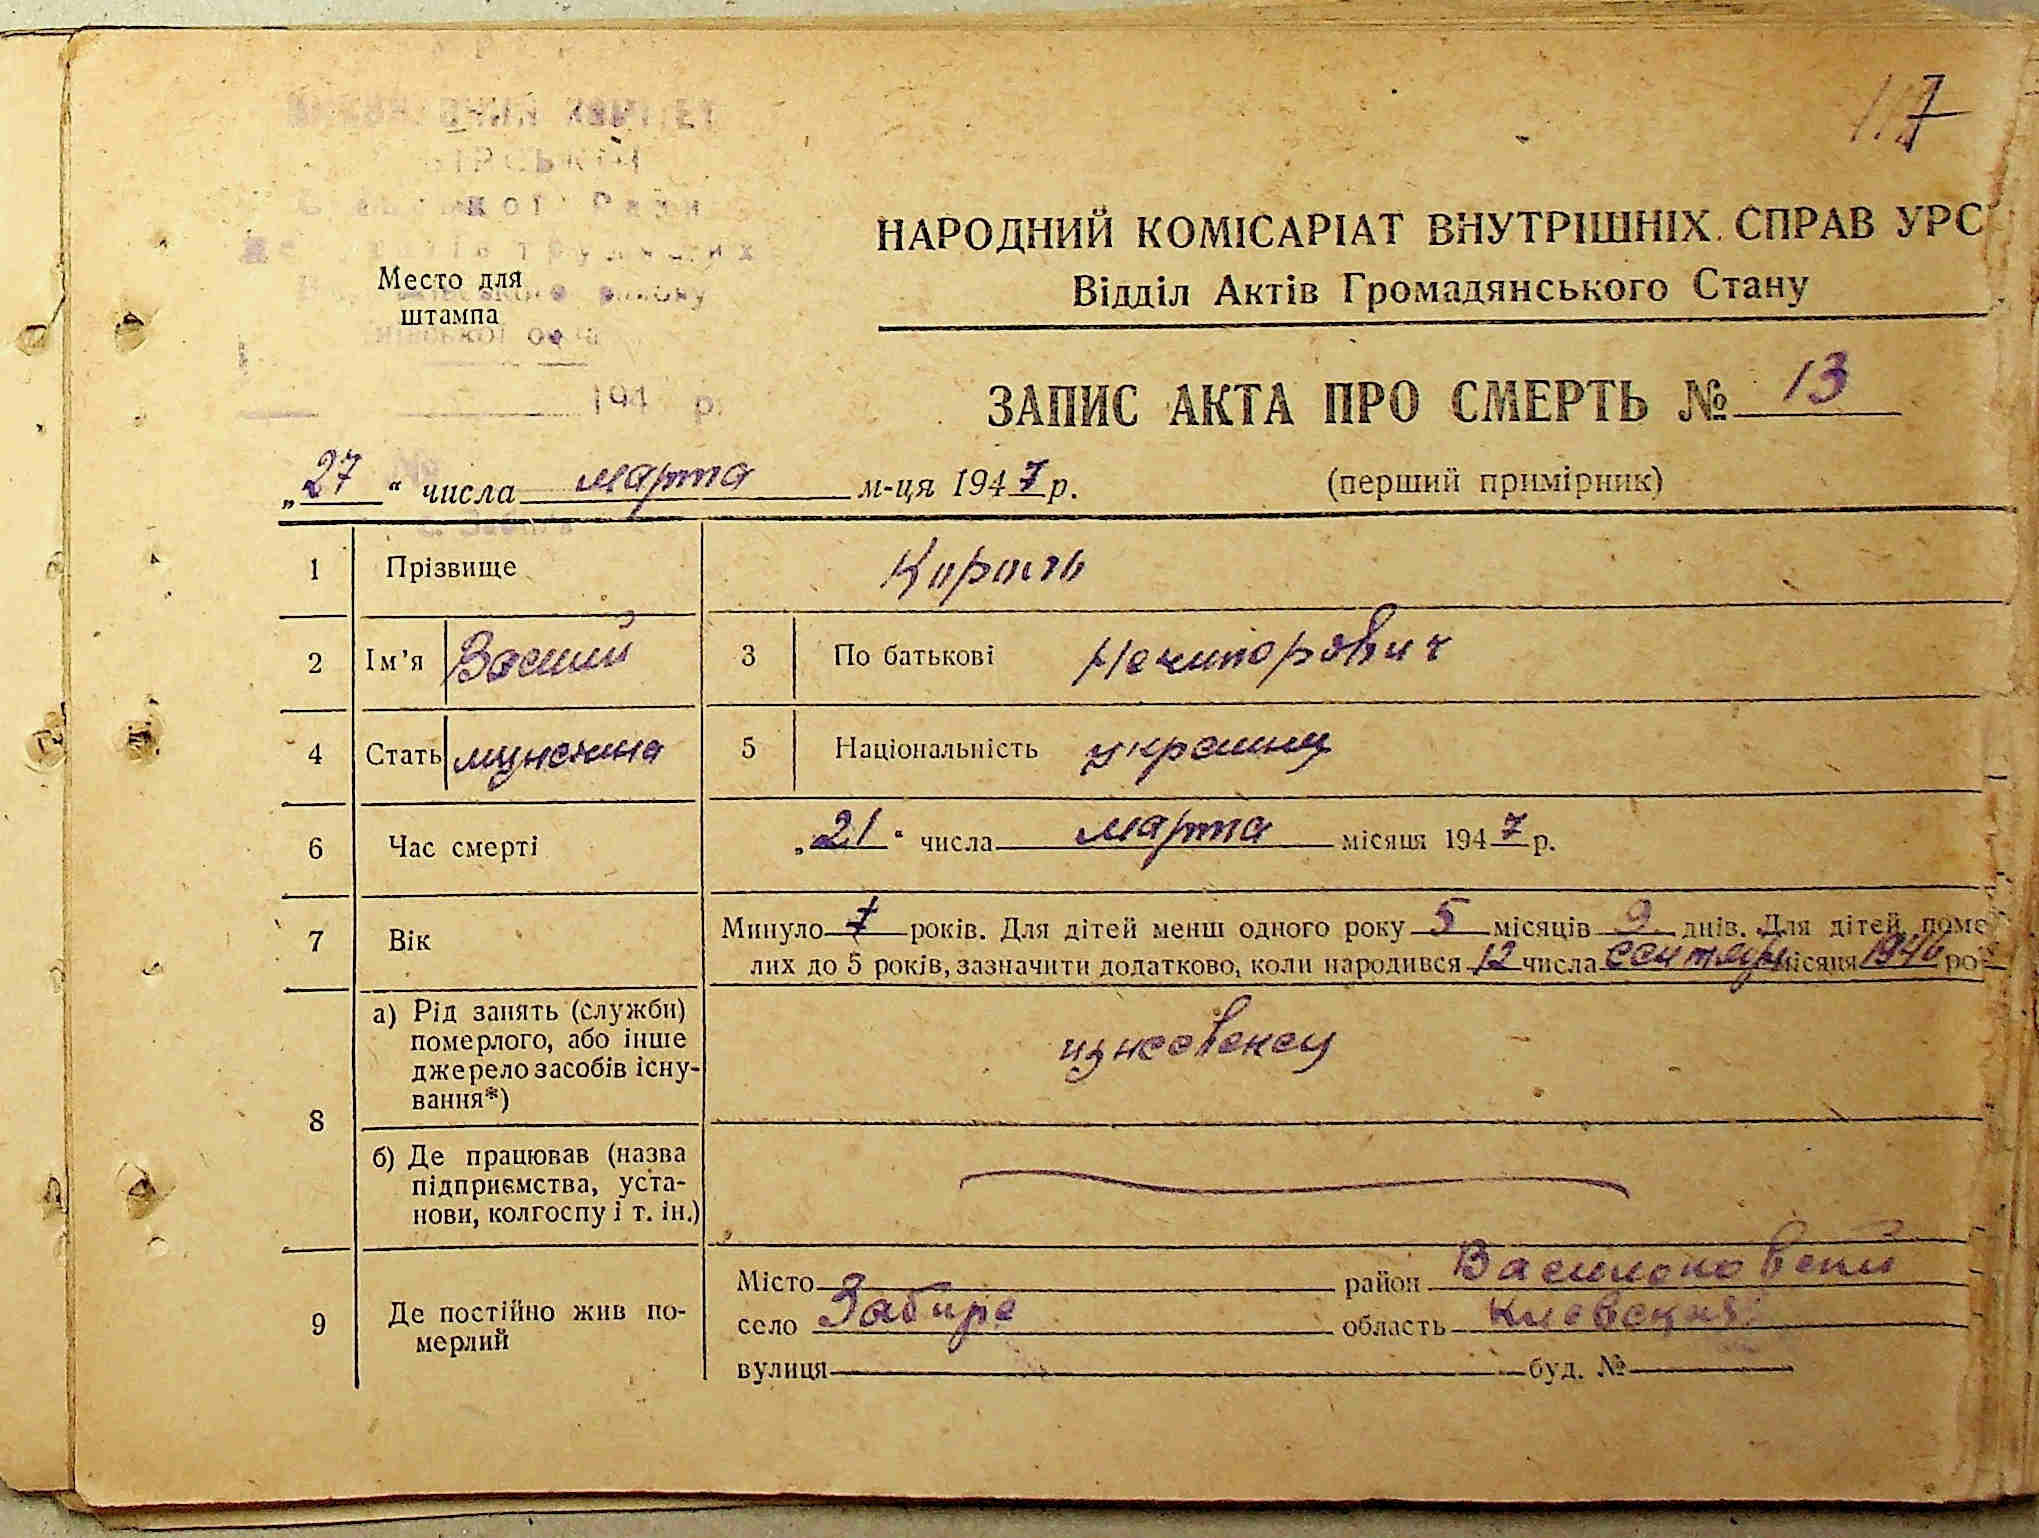 117
НАРОДНИЙ КОМІСАРІАТ ВНУТРІШНІХ СПРАВ УРС
Відділ Актів Громадянського Стану
Место для
штампа
194 р.
ЗАПИС АКТА ПРО СМЕРТЬ № 13
„27“ числа марта м-ця 1947 р.
(перший примірник)
1 Прізвище Король
2 Ім’я Василий 3 По батькові Нечипорович
4 Стать мужчина 5 Національність украинец
6 Час смерті „21“ числа марта місяця 1947 р.
7 Вік Минуло років. Для дітей менш одного року 5 місяців 9 днів. Для дітей, поме
лих до 5 років, зазначити додатково, коли народився 12 числа сентябр місяця 1946 ро
8 а) Рід занять (служби)
померлого, або інше
джерело засобів існу-
вання*)
иждевенец
б) Де працював (назва
підприємства, уста-
нови, колгоспу і т. ін.)
9 Де постійно жив по-
мерлий
Місто район Васильковский
село Забирє область Киевская
вулиця буд. №